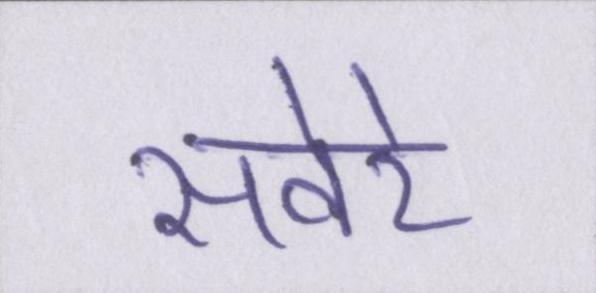 सवेरे